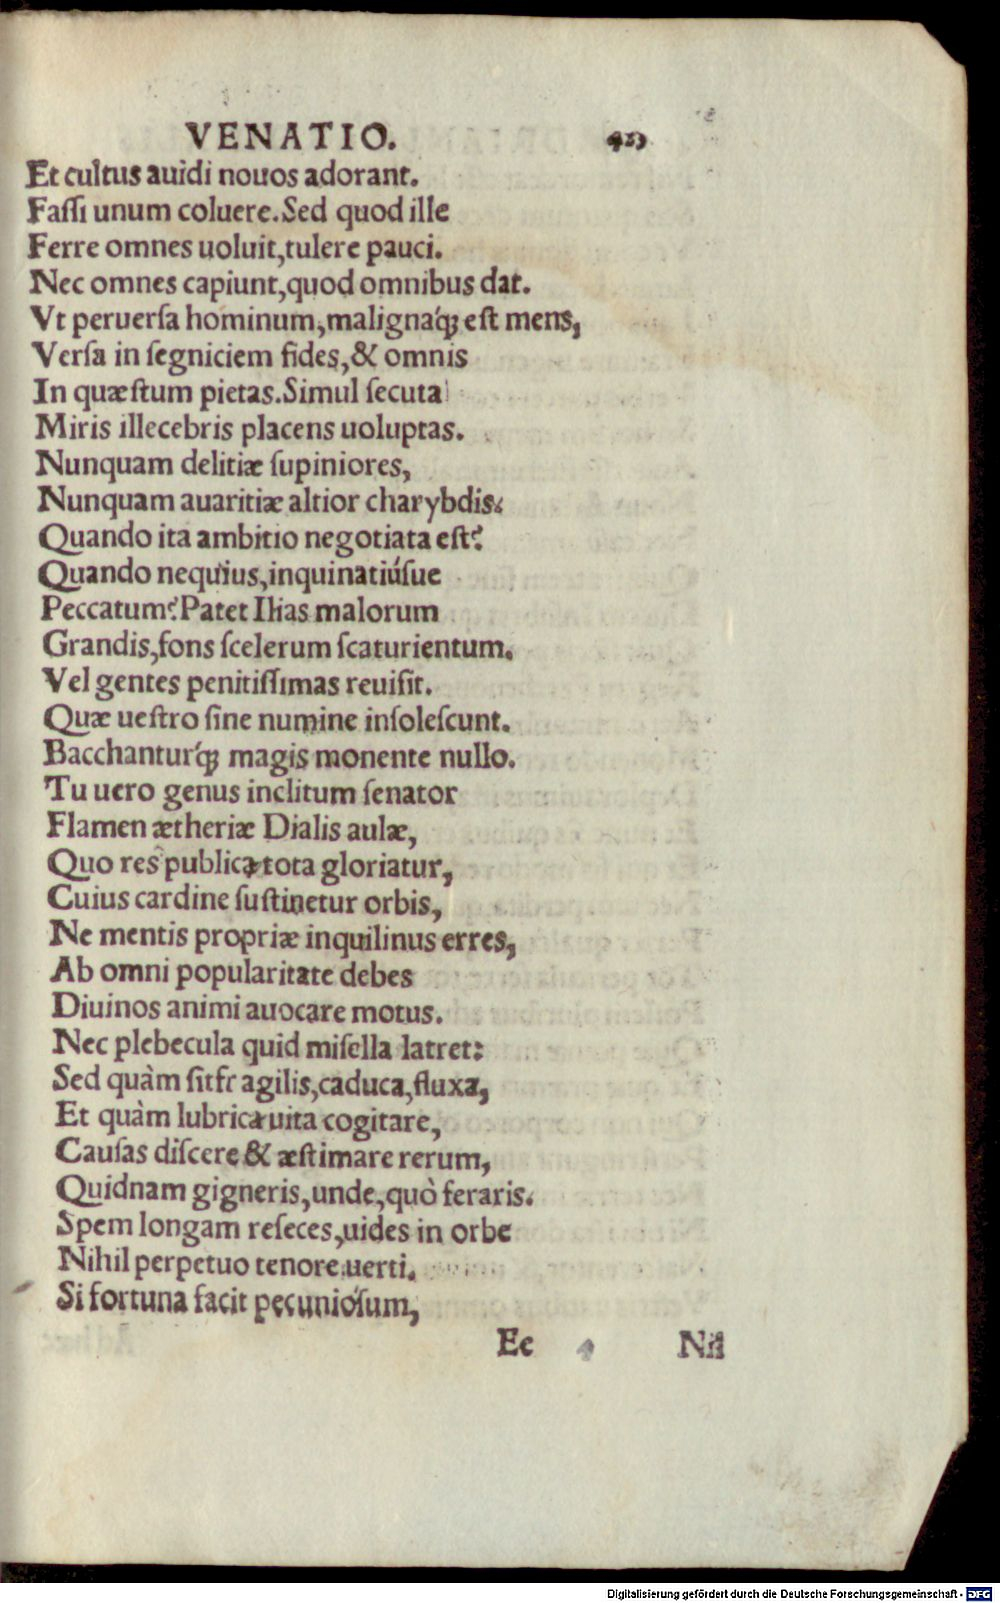 VENATIO.
Et cultus auidi nouos adorant.
Faſſi unum coluere.Sed quod ille
Ferre omnes uoluit,tulere pauci.
Nec omnes capiunt,quod omnibus dat.
Vt peruerſa hominum,malignáq; eſt mens,
Verſa in ſegniciem fides,& omnis
In quæſtum pietas.Simul ſecuta
Miris illecebris placens uoluptas.
Nunquam delitiæ ſupiniores,
Nunquam auaritiæ altior charybdis.
Quando ita ambitio negotiata eſt?
Quando nequius,inquinatiúſue
Peccatum?Patet Ilias malorum
Grandis,fons ſcelerum ſcaturientum.
Vel gentes penitiſſimas reuiſit.
Quæ ueſtro ſine numine inſoleſcunt.
Bacchanturq́; magis monente nullo.
Tu uero genus inclitum ſenator
Flamen ætheriæ Dialis aulæ,
Quo res publica tota gloriatur,
Cuius cardine ſuſtinetur orbis,
Ne mentis propriæ inquilinus erres,
Ab omni popularitate debes
Diuinos animi auocare motus.
Nec plebecula quid miſella latret:
Sed quàm ſit fragilis,caduca,fluxa,
Et quàm lubrica uita cogitare,
Cauſas diſcere & æſtimare rerum,
Quidnam gigneris,unde,quò feraris.
Spem longam reſeces,uides in orbe
Nihil perpetuo tenore uerti.
Si fortuna facit pecunióſum,
Ee 4 Nil
Digitalisierung gefördert durch die Deutsche Forschungsgemeinschaft - DFG